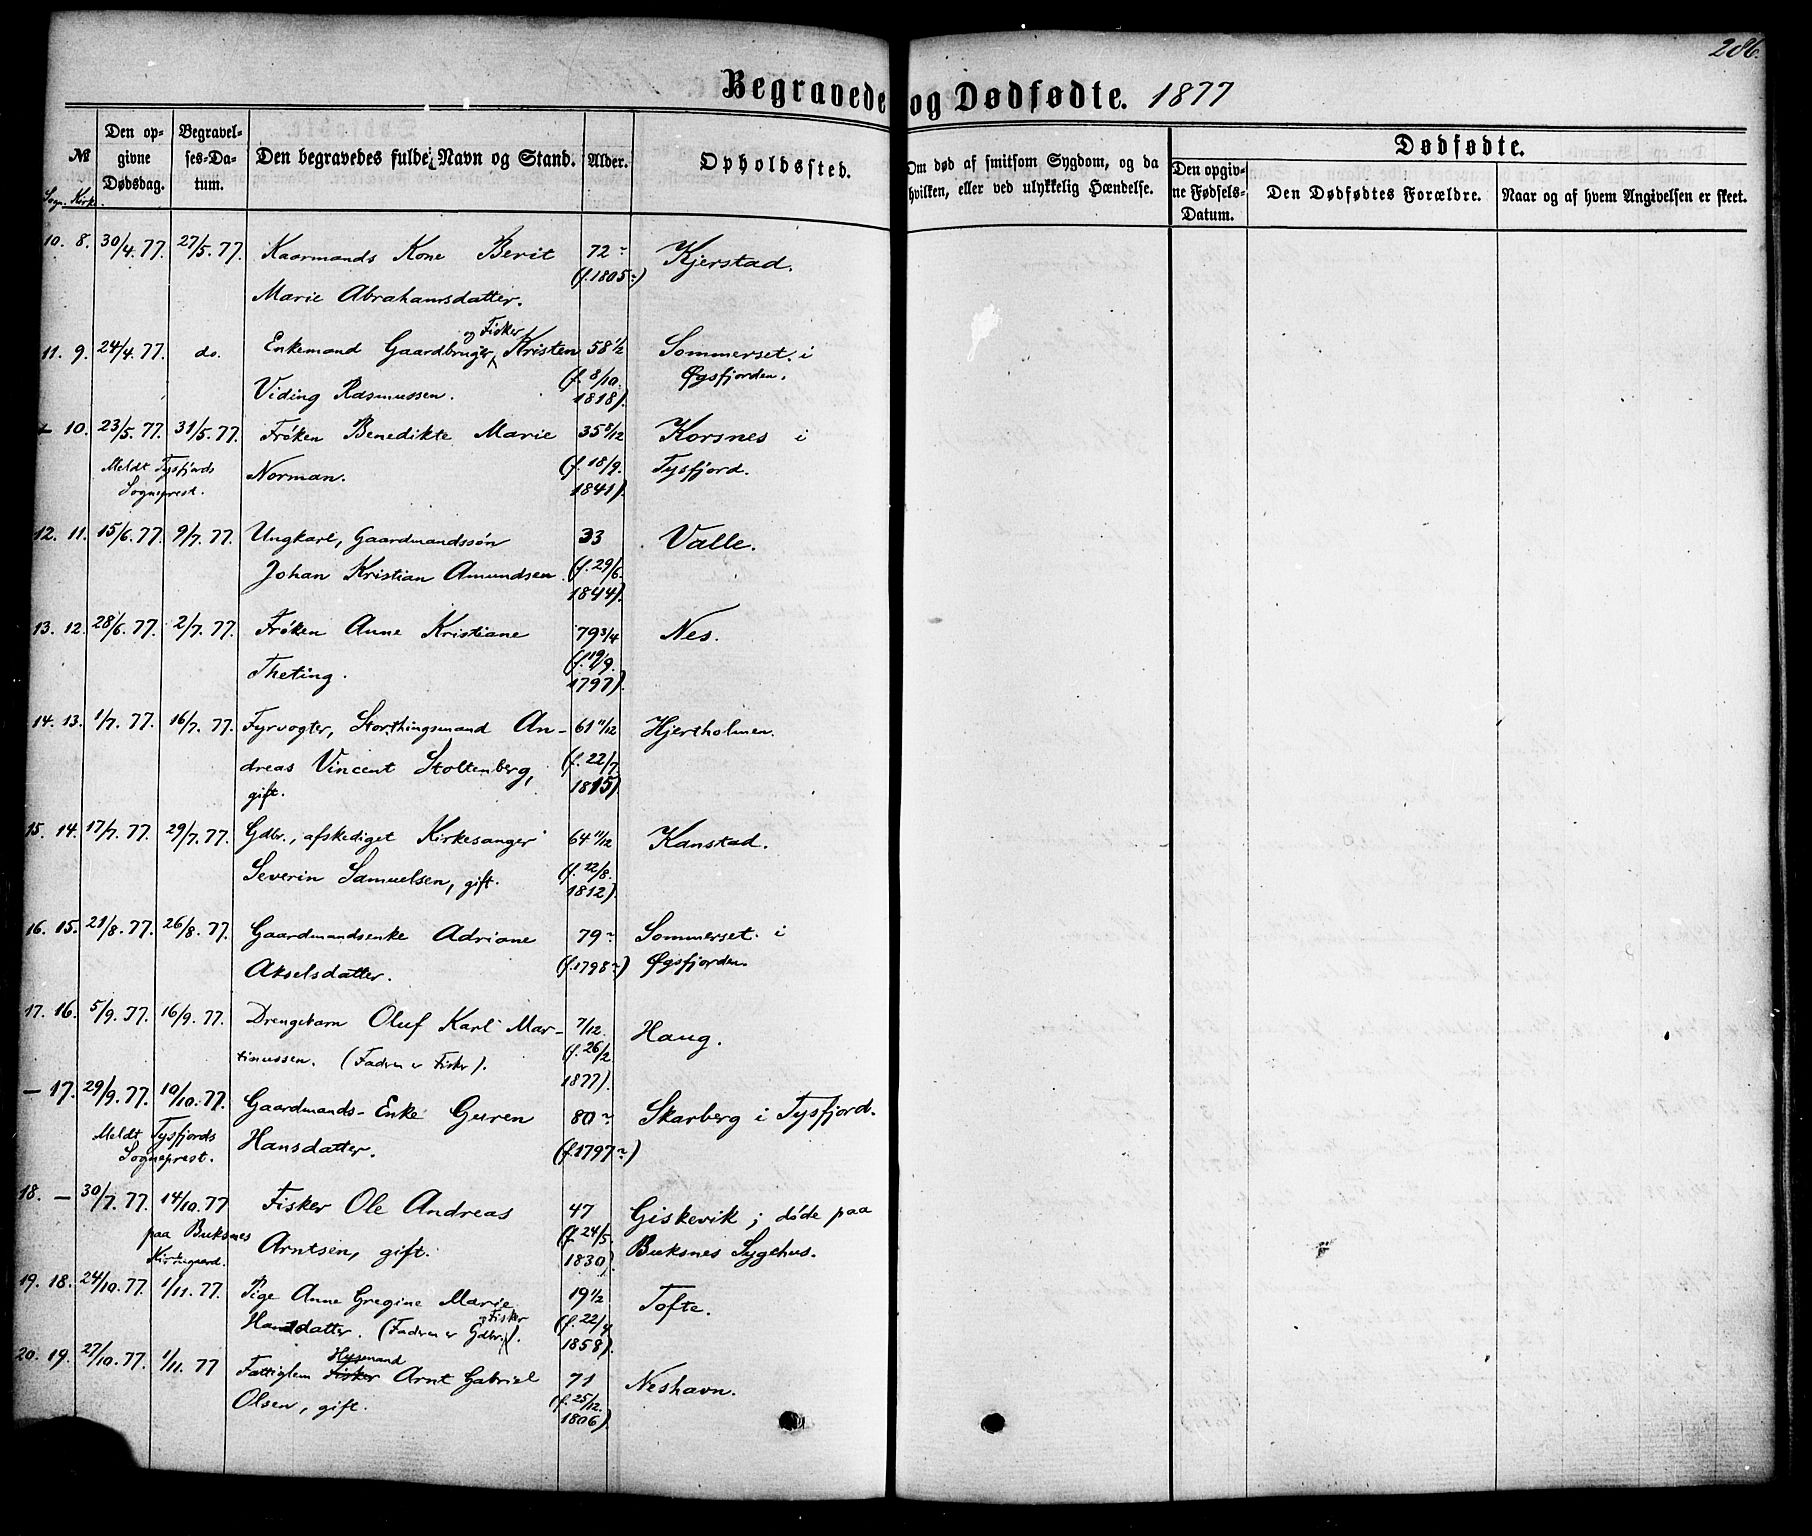 286.
Begravede og Dødfødte. 1877
№
Sogn. Kirk.
Den op-
givne
Dødsdag.
Begravel-
ses-Da-
tum.
Den begravedes fulde Navn og Stand.
Alder.
Opholdssted.
Om død af smitsom Sygdom, og da
hvilken, eller ved ulykkelig Hændelse.
Dødfødte.
Den opgiv-
ne Fødsels-
Datum.
Den Dødfødtes Forældre.
Naar og af hvem Angivelsen er skeet.
10. 8. 30/4. 77. 27/5. 77. Kaarmands Kone Berit 72~ Kjerstad.
(f. 1805~)
Marie Abrahamsdatter.
og Fisker
11. 9. 24/4. 77. do. Enkemand Gaardbruger, Kristen 58 1/2 Sommerset i
Viding Rasmussen. (f. 8/10. 1818). Øgsfjorden.
+ 10. 23/5. 77. 31/5. 77. Frøken Benedikte Marie 35 8/12 Korsnes i
Meldt Tysfjords Norman. (f. 18/9. Tysfjord.
Sogneprest. 1841).
12. 11. 15/6. 77. 9/7. 77. Ungkarl, Gaardmandssøn 33 Valle.
Johan Kristian Amundsen. (f. 29/6.
1844).
13. 12. 28/6. 77. 2/7. 77. Frøken Anne Kristiane 79 3/4 Nes.
Theting. (f. 19/9.
1797).
14. 13. 1/7. 77. 16/7. 77. Fyrvogter, Storthingsmand An- 61 11/12 Hjertholmen.
dreas Vincent Stoltenberg, (f. 22/7
gift. 1815).
15. 14. 17/7. 77. 29/7. 77. Gdbr., afskediget Kirkesanger 64 11/12 Kanstad.
Severin Samuelsen, gift. (f. 22/8.
1812).
16. 15. 21/8. 77. 26/8. 77. Gaardmandsenke Adriane 79~ Sommerset i
Akselsdatter. (f. 1798~) Øgsfjorden.
17. 16. 5/9. 77. 16/9. 77. Drengebarn Oluf Karl Mar- 7/12. Haug.
tinussen. (Faderen er Fisker). (f. 26/2.
1877).
– 17. 29/9. 77. 10/10. 77. Gaardmands-Enke Guren 80~ Skarberg i Tysfjord.
Meldt Tysfjords Hansdatter. (f. 1797~)
Sogneprest.
18. – 30/7. 77. 14/10. 77 Fisker Ole Andreas 47 Giskevik; døde paa
paa Buksnes Arntsen, gift. (f. 24/5. Buksnes Sygehus.
Kirkegaard. 1830).
19. 18. 24/10. 77. 1/11. 77. Pige Anne Gregine Marie 19 1/2 Tofte.
Hansdatter. (Faderen er Gdbr. og Fisker). (f. 22/4
1858).
Husmand
20. 19. 27/10. 77. 1/11. 77 Fattiglem Fisker Arnt Gabriel 71 Neshavn.
Olsen, gift. (f. 25/12.
1806).